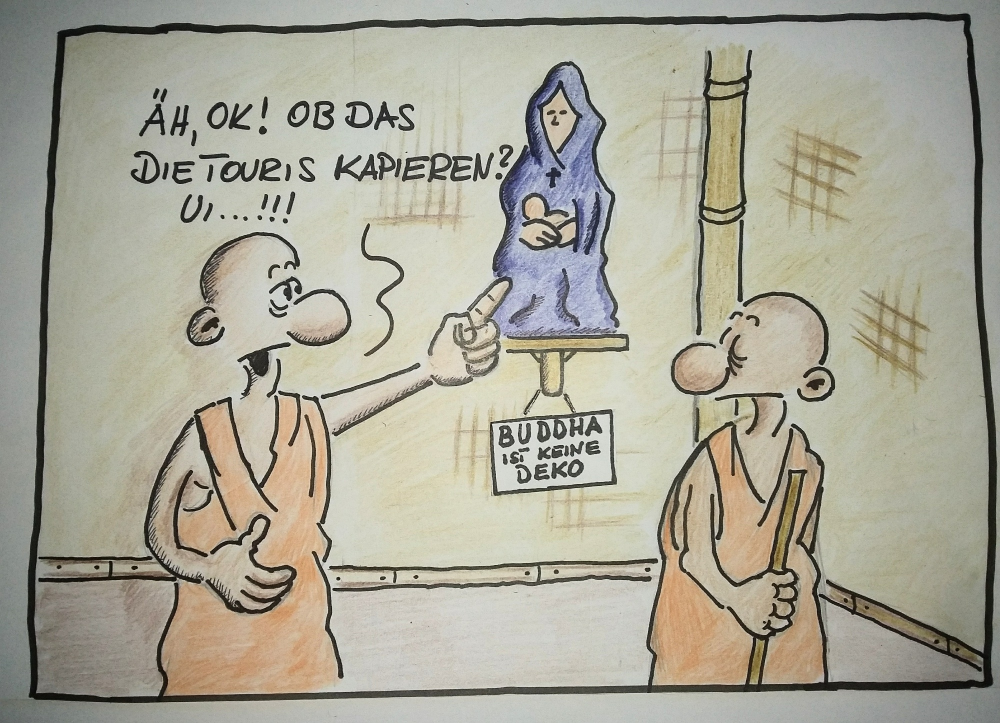 ÄH, OK! OB DAS
DIE TOURIS KAPIEREN?
UI...!!!
BUDDHA
IST KEINE
DEKO